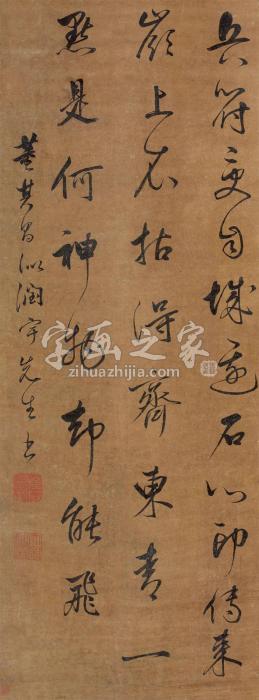 兵符受自城邊石心印傳來
嶺上衣拈得齊東青一
點是何神物却能飛
董其昌似潤宇先生書
字画之家
zihuazhijia.com